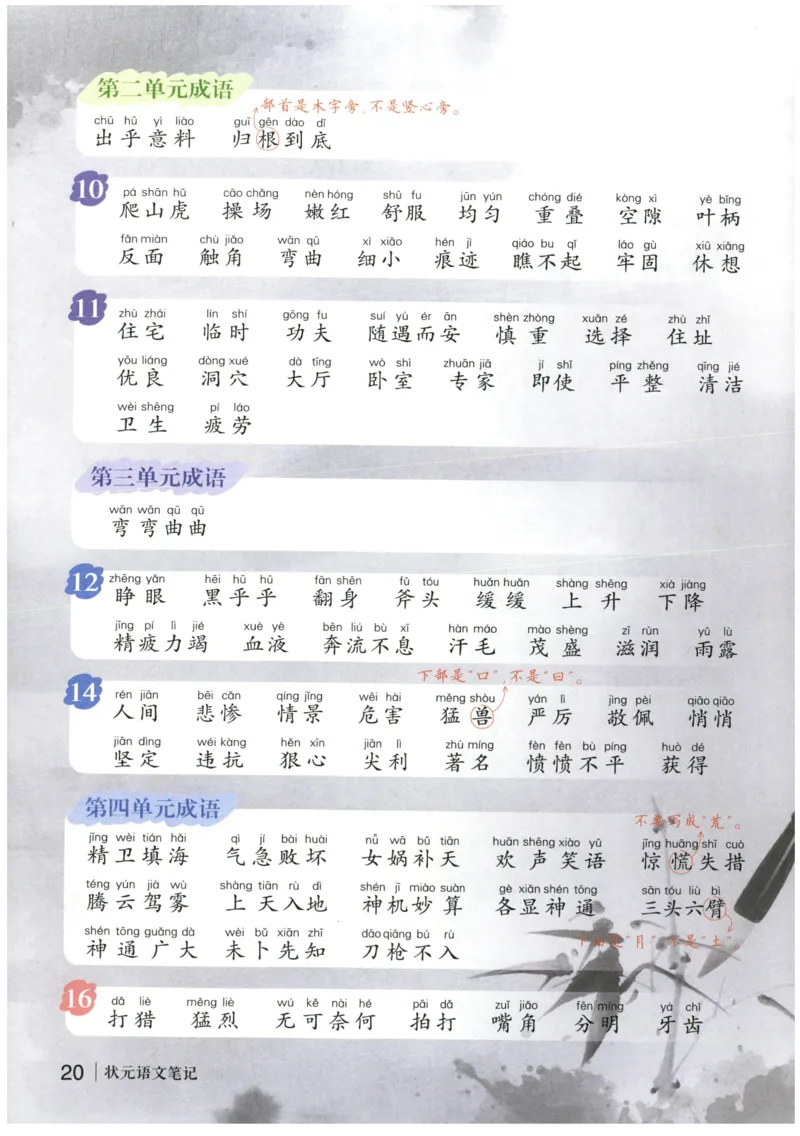 第二单元成语
部首是木字旁,不是竖心旁。
chū hū yì liào guī gēn dào dǐ
出乎意料 归根到底
10
pá shān hǔ cāo chǎng nèn hóng shū fu jūn yún chóng dié kòng xì yè bǐng
爬山虎 操场 嫩红 舒服 均匀 重叠 空隙 叶柄
fǎn miàn chù jiǎo wān qū xì xiǎo hén jì qiáo bu qǐ láo gù xiū xiǎng
反面 触角 弯曲 细小 痕迹 瞧不起 牢固 休想
11
zhù zhái lín shí gōng fu suí yù ér ān shèn zhòng xuǎn zé zhù zhǐ
住宅 临时 功夫 随遇而安 慎重 选择 住址
yōu liáng dòng xué dà tīng wò shì zhuān jiā jí shǐ píng zhěng qīng jié
优良 洞穴 大厅 卧室 专家 即使 平整 清洁
wèi shēng pí láo
卫生 疲劳
第三单元成语
wān wān qū qū
弯弯曲曲
12
zhēng yǎn hēi hū hū fān shēn fǔ tóu huǎn huǎn shàng shēng xià jiàng
睁眼 黑乎乎 翻身 斧头 缓缓 上升 下降
jīng pí lì jié xuè yè bēn liú bù xī hàn máo mào shèng zī rùn yǔ lù
精疲力竭 血液 奔流不息 汗毛 茂盛 滋润 雨露
下部是“口”,不是“曰”。
14
rén jiān bēi cǎn qíng jǐng wēi hài měng shòu yán lì jìng pèi qiāo qiāo
人间 悲惨 情景 危害 猛兽 严厉 敬佩 悄悄
jiān dìng wéi kàng hěn xīn jiān lì zhù míng fèn fèn bù píng huò dé
坚定 违抗 狠心 尖利 著名 愤愤不平 获得
第四单元成语
不要写成“荒”。
jīng wèi tián hǎi qì jí bài huài nǚ wā bǔ tiān huān shēng xiào yǔ jīng huāng shī cuò
精卫填海 气急败坏 女娲补天 欢声笑语 惊慌失措
téng yún jià wù shàng tiān rù dì shén jī miào suàn gè xiǎn shén tōng sān tóu liù bì
腾云驾雾 上天入地 神机妙算 各显神通 三头六臂
下部是“月”,不是“土”。
shén tōng guǎng dà wèi bǔ xiān zhī dāo qiāng bú rù
神通广大 未卜先知 刀枪不入
16
dǎ liè měng liè wú kě nài hé pāi dǎ zuǐ jiǎo fēn míng yá chǐ
打猎 猛烈 无可奈何 拍打 嘴角 分明 牙齿
20 | 状元语文笔记